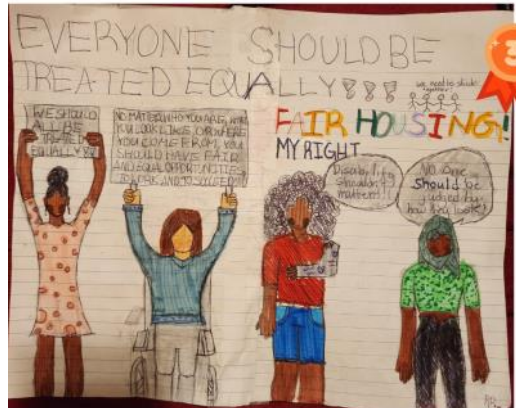 EVERYONE SHOULD BE
TREATED EQUALLY!!!
we need to stick
together!
3
FAIR HOUSING!
MY RIGHT
WE SHOULD
ALL BE
TREATED
EQUALLY!!!
NO MATTER WHO YOU ARE, WHAT
YOU LOOK LIKE, OR WHERE
YOU COME FROM, YOU
SHOULD HAVE FAIR
AND EQUAL OPPORTUNITIES
TO WORK AND TO SUCCEED!
Disability
shouldn't
matter!!!
No one
should be
judged by
how they look!!